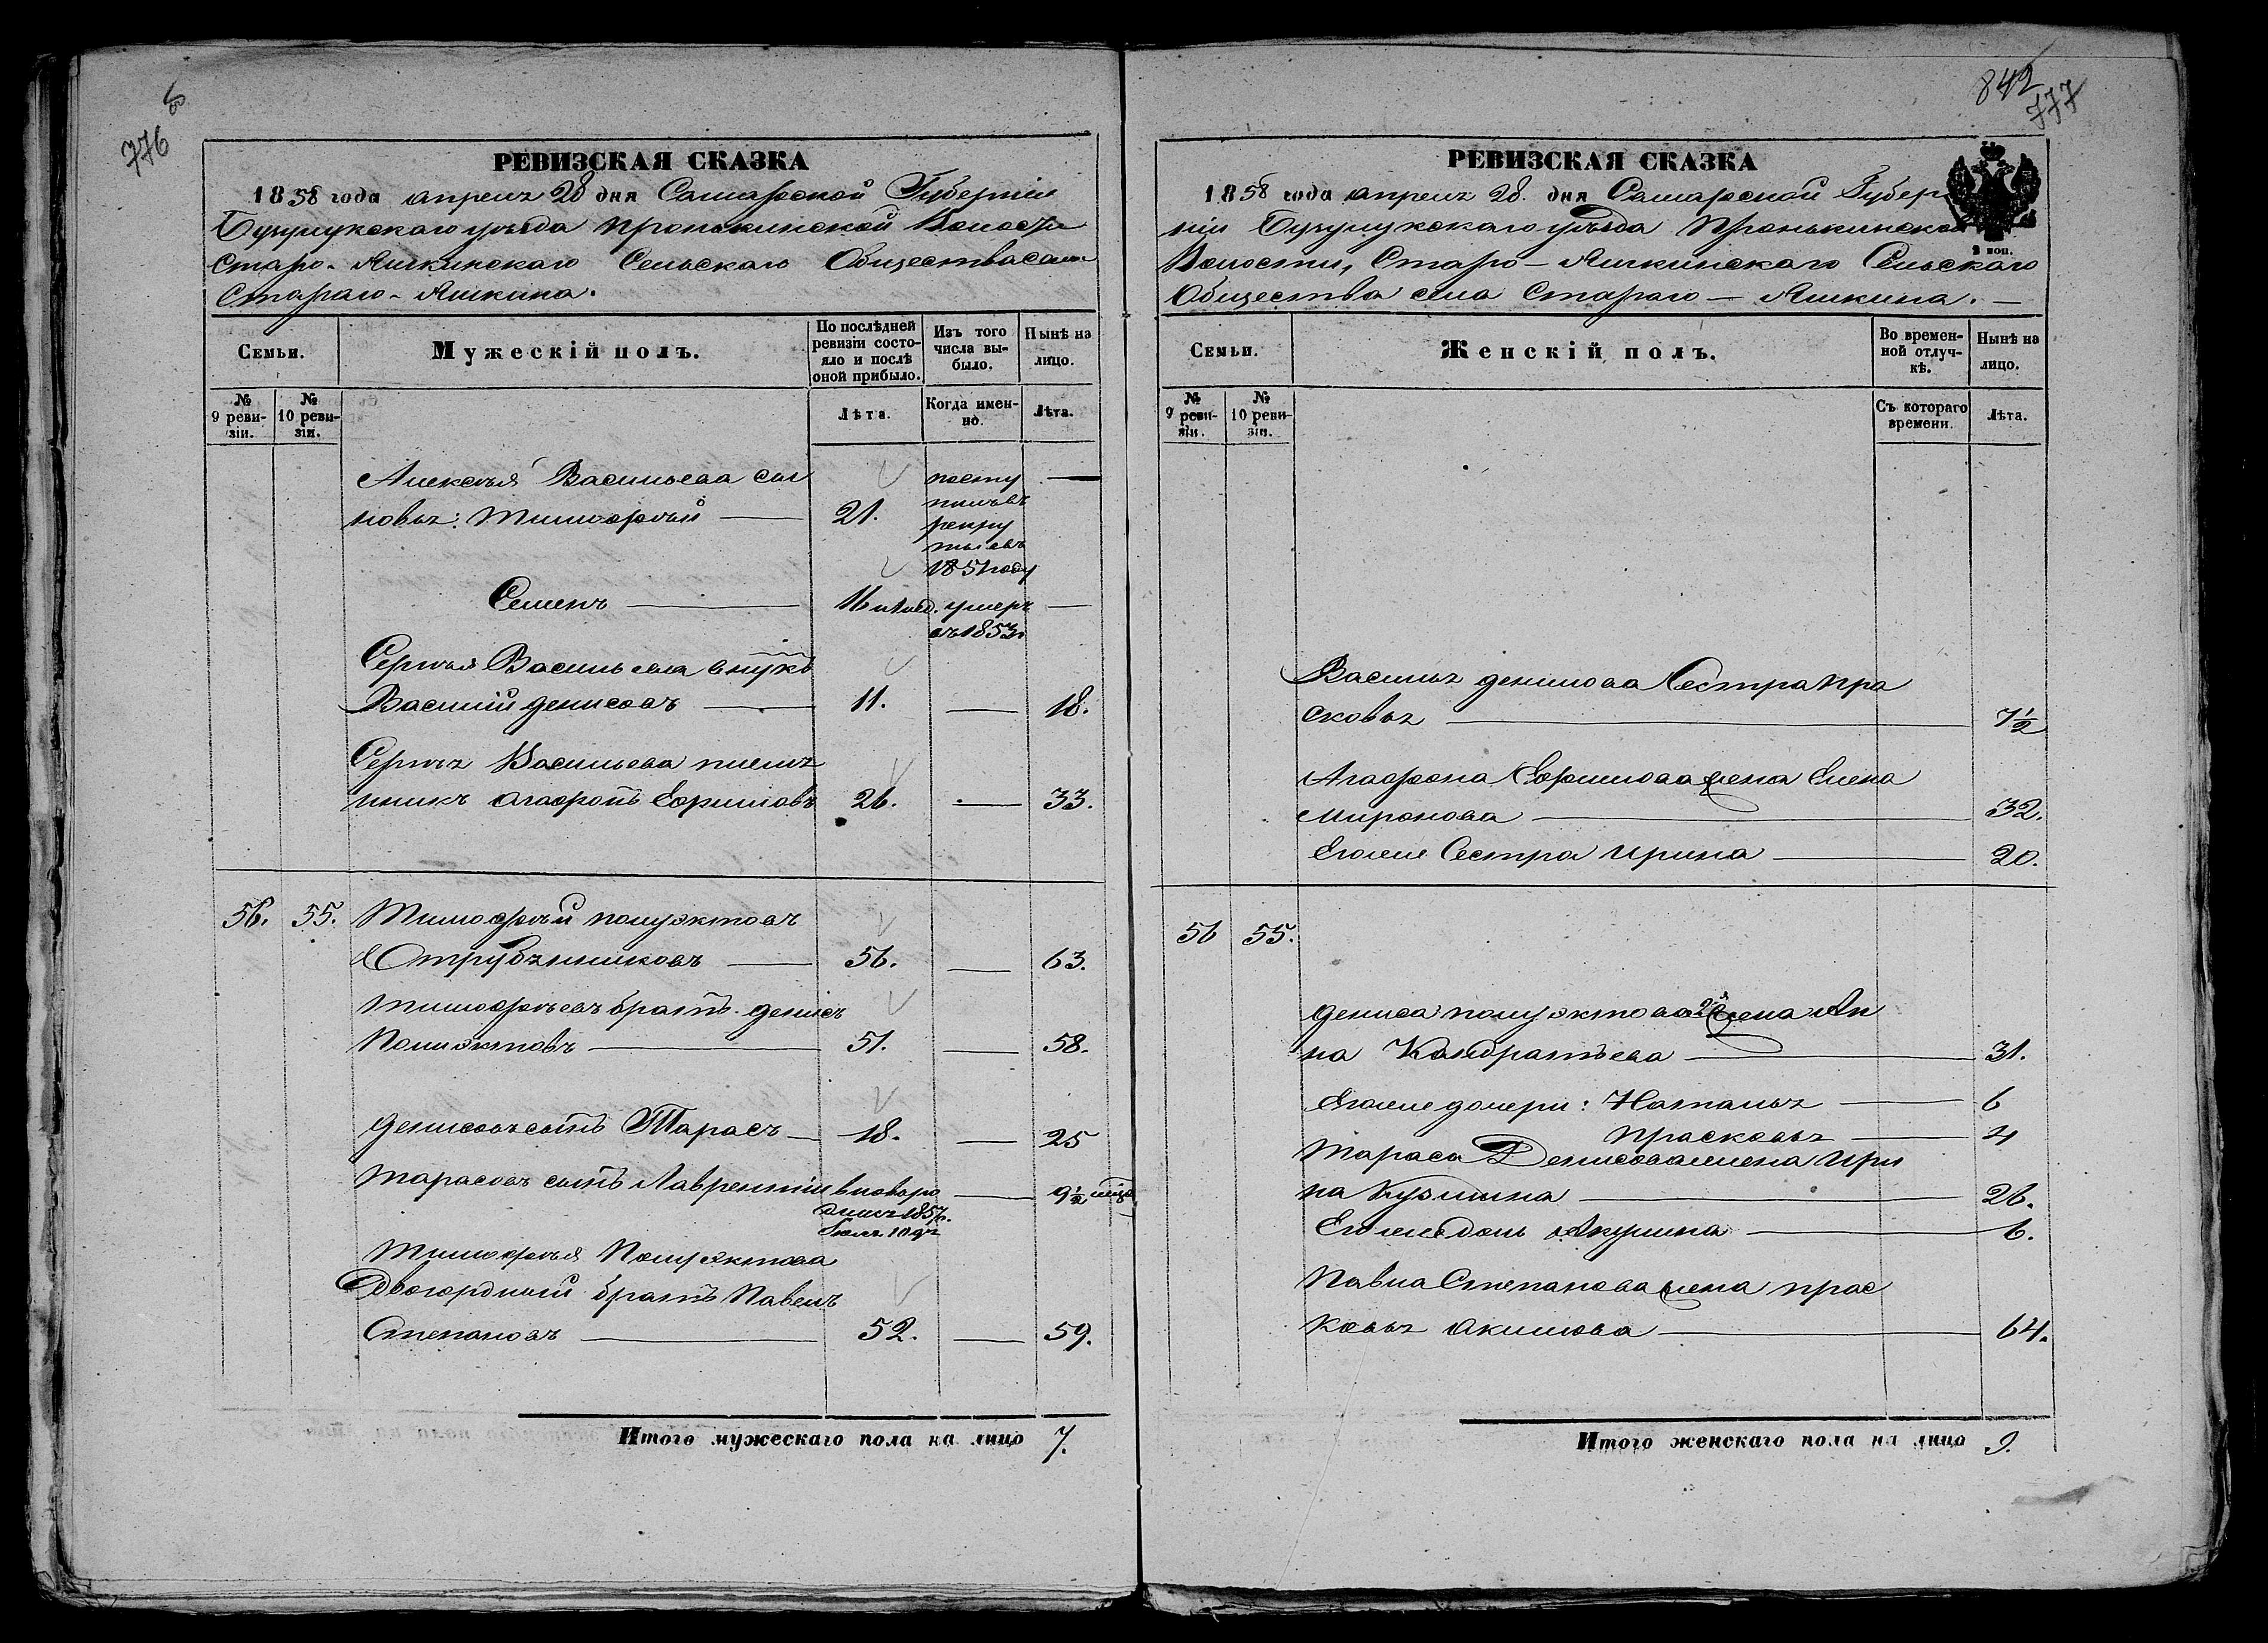 776
РЕВИЗСКАЯ СКАЗКА
1858 года апреля 28 дня Самарской Губерніи
Бузулукскаго уѣзда Пронькинской Волости
Старо-Яшкинскаго Сельскаго Общества села
Стараго-Яшкина.
Семьи.
Мужескій полъ.
По послѣдней ревизіи состояло и послѣ оной прибыло.
Изъ того числа выбыло.
Нынѣ на лицо.
№ 9 ревизіи.
№ 10 ревизіи.
Лѣта.
Когда именно.
Лѣта.
Алексѣя Васильева сы
новья: Тимофѣй — 21. посту
пилъ въ
рекру
ты въ
1851 году —
Семенъ — 16 умеръ —
въ 1853
Сергѣя Васильева внукъ
Василій Денисовъ — 11. — 18.
Сергѣя Васильева племя
нникъ Агафонъ Ефимовъ 26. — 33.
56. 55. Тимофѣй Полуэктовъ
Отрубянниковъ — 56. — 63.
Тимофѣевъ братъ Денисъ
Полиэктовъ — 51. — 58.
Денисовъ сынъ Тарасъ — 18. — 25
Тарасовъ сынъ Лаврентій вновьро — 9½ мѣся
дился 1857 г.
Іюля 10 дня
Тимофѣя Полуэктова
Двоюродный братъ Павелъ
Степановъ — 52. — 59.
Итого мужескаго пола на лицо 7.
842
777
РЕВИЗСКАЯ СКАЗКА
1858 года апреля 28. дня Самарской Губер
ніи Бузулукскаго уѣзда Пронькинской
2 коп.
Волости, Старо-Яшкинскаго Сельскаго
Общества села Стараго-Яшкина. —
Семьи.
Женскій полъ.
Во временной отлучкѣ.
Нынѣ на лицо.
№ 9 ревизіи.
№ 10 ревизіи.
Съ котораго времени.
Лѣта.
Василья Денисова Сестра Пра
сковья — 7½
Агафона Ефимова жена Елена
Миронова — 32.
Егоже Сестра Ирина — 20.
56 55.
Дениса Полуэктова 2я жена Ан
на Кондратьева — 31.
Егоже дочери: Наталья — 6
Прасковья — 4
Тараса Денисова жена Ири
на Кузмина — 26.
Егоже дочь Акулина — 6.
Павла Степанова жена Прас
ковья Акимова — 64.
Итого женскаго пола на лицо 9.